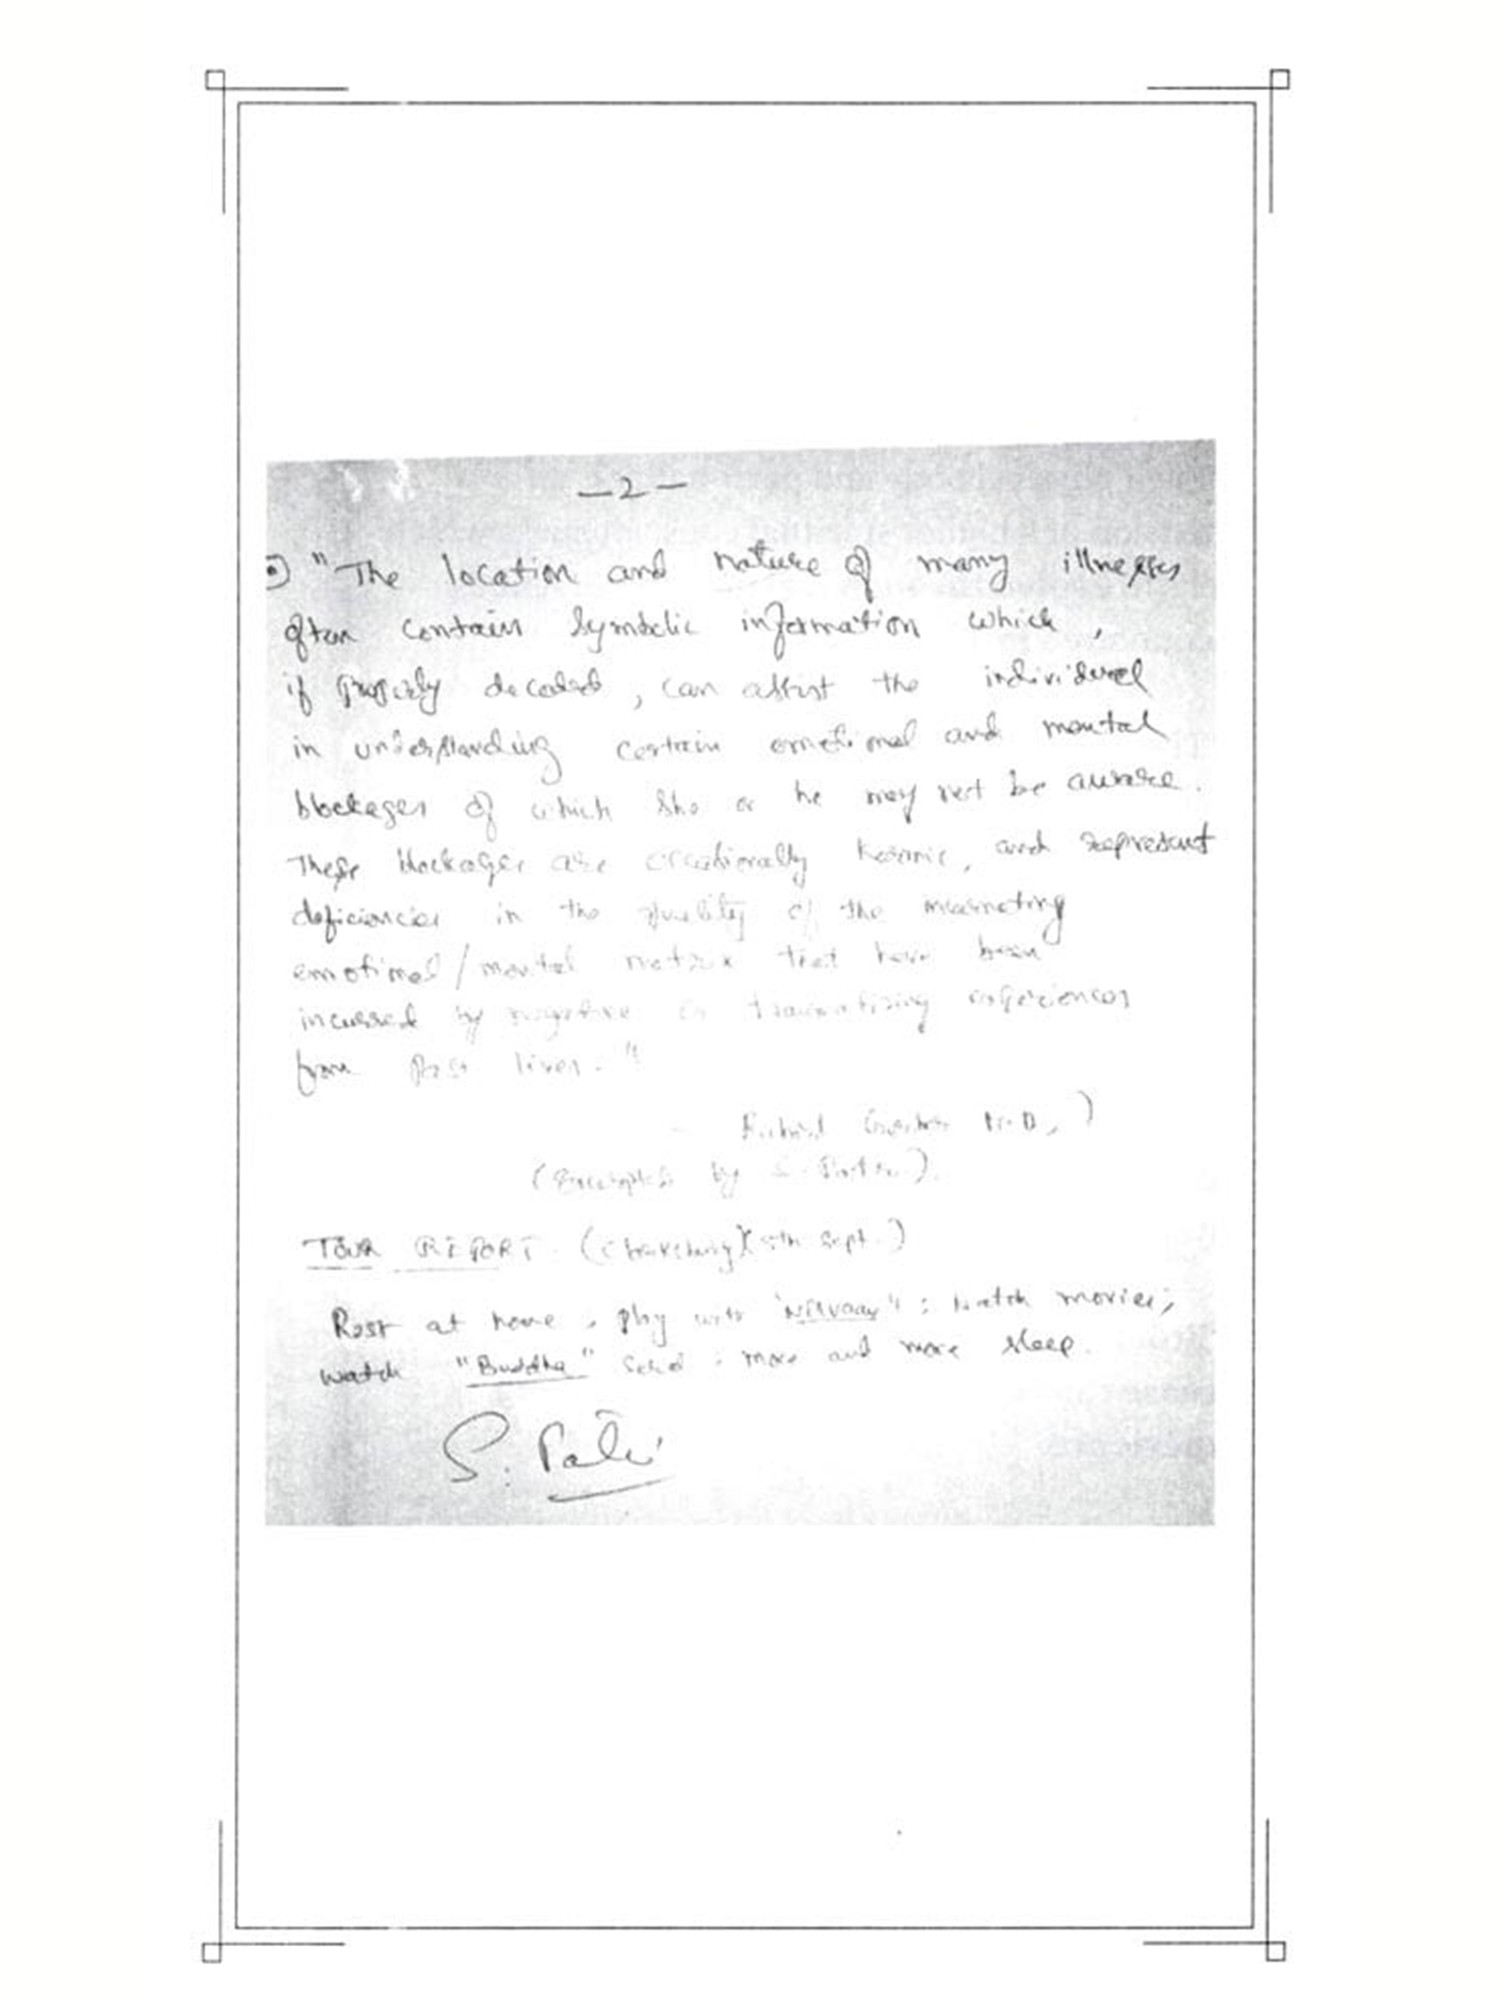 —2—
"The location and nature of many illnesses
often contain symbolic information which,
if properly decoded, can assist the individual
in understanding certain emotional and mental
blockages of which she or he may not be aware.
These blockages are occasionally karmic, and represent
deficiencies in the quality of the incarnating
emotional/mental matrix that have been
incurred by negative or traumatizing experiences
from past lives."
M.D.)
by S.
TOUR REPORT. (5th Sept.)
Rest at home, play with "Nirvaay"; watch movies;
watch "Buddha" ; more and more sleep.
S.